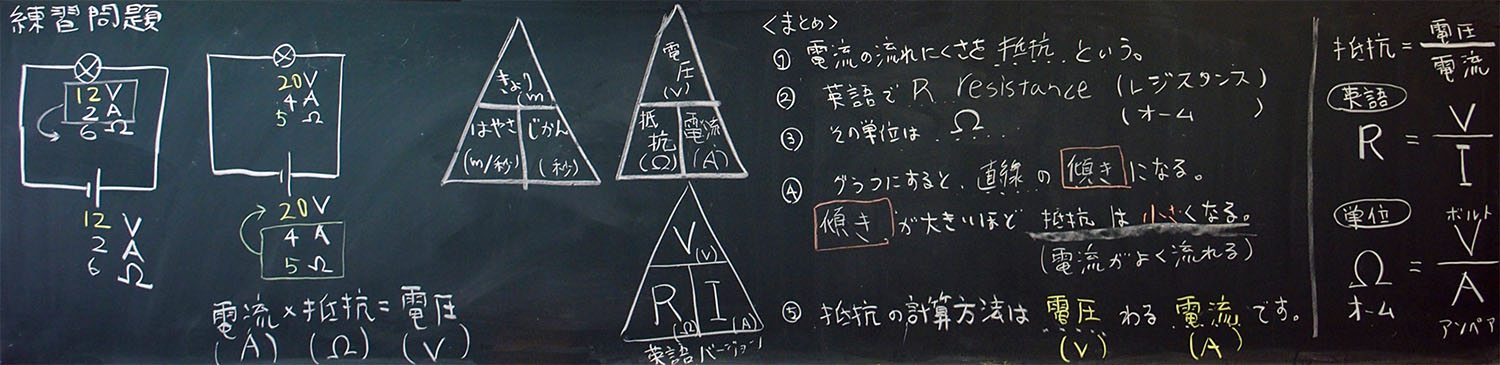 練習問題
12 V
2 A
6 Ω
12 V
2 A
6 Ω
20 V
4 A
5 Ω
20 V
4 A
5 Ω
電流 × 抵抗 = 電圧
(A) (Ω) (V)
きょり
(m)
はやさ
(m/秒)
じかん
(秒)
電圧
(V)
抵抗
(Ω)
電流
(A)
V (V)
R (Ω)
I (A)
英語バージョン
<まとめ>
① 電流の流れにくさを 抵抗 という。
② 英語で R resistance (レジスタンス)
③ その単位は Ω (オーム )
④ グラフにすると、直線の 傾き になる。
傾き が大きいほど 抵抗は 小さくなる。
(電流がよく流れる)
⑤ 抵抗の計算方法は 電圧 わる 電流 です。
(V) (A)
抵抗 = 電圧
電流
英語
R = V
I
単位
ボルト
Ω = V
A
オーム
アンペア